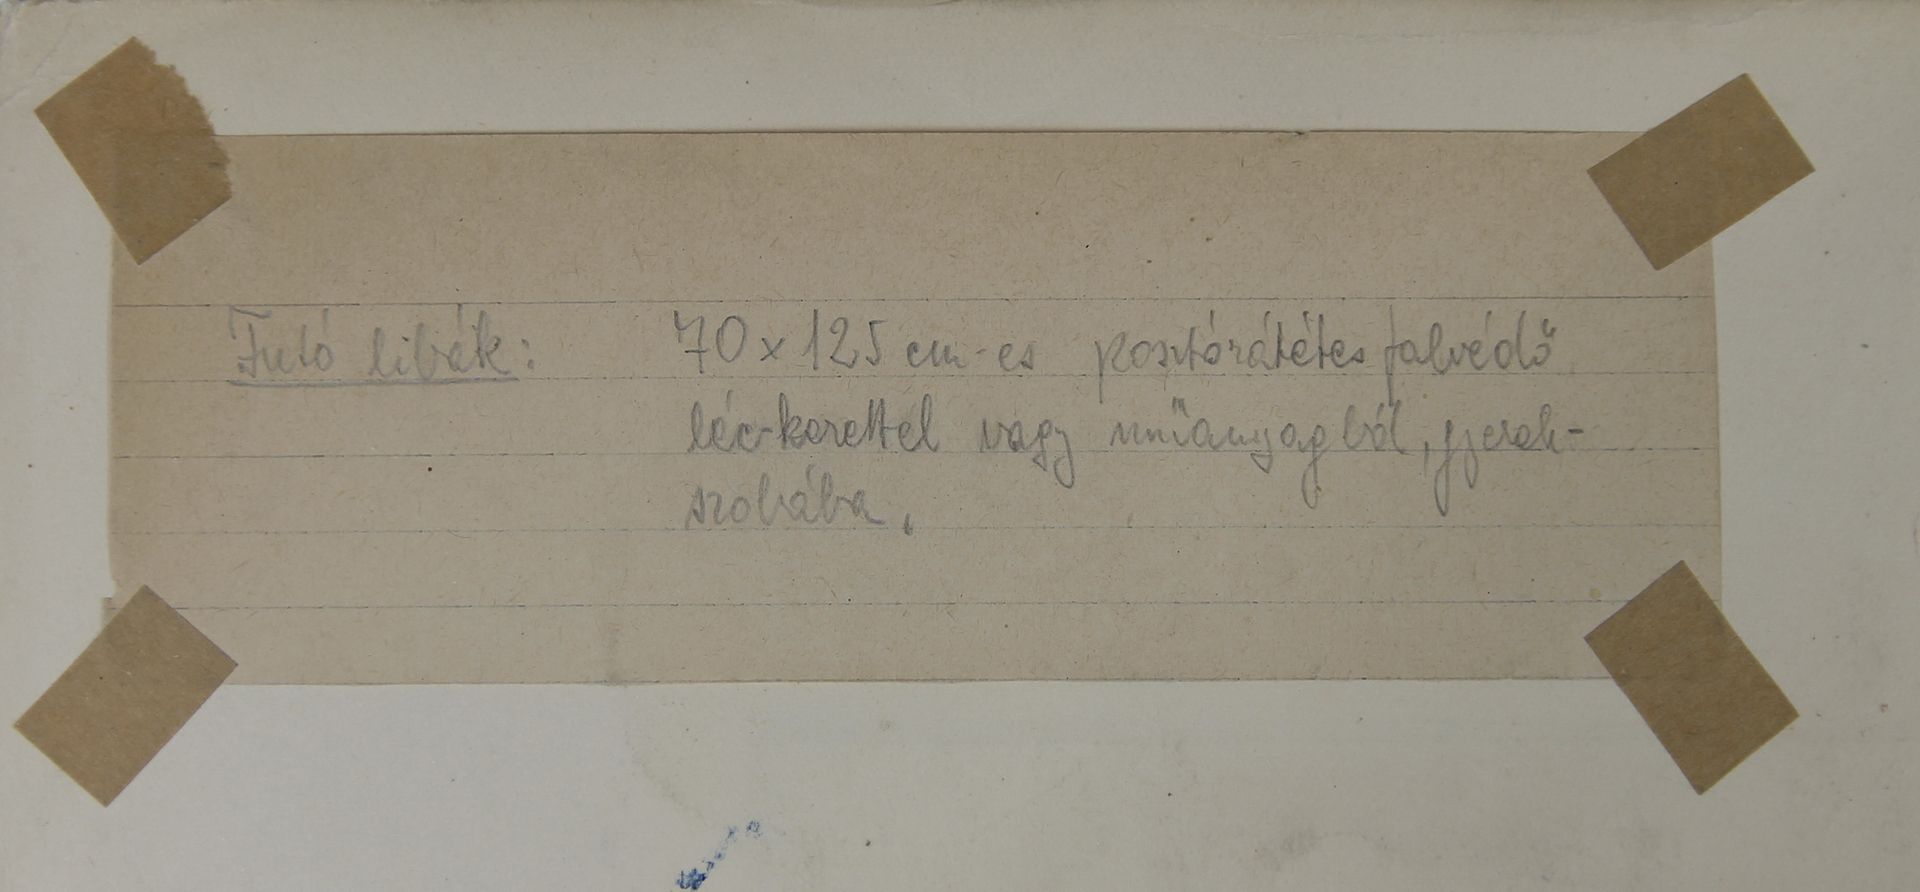 Futó libák: 70 x 125 cm-es posztórátétes falvédő
léc-kerettel vagy műanyagból, gyerek-
szobába.